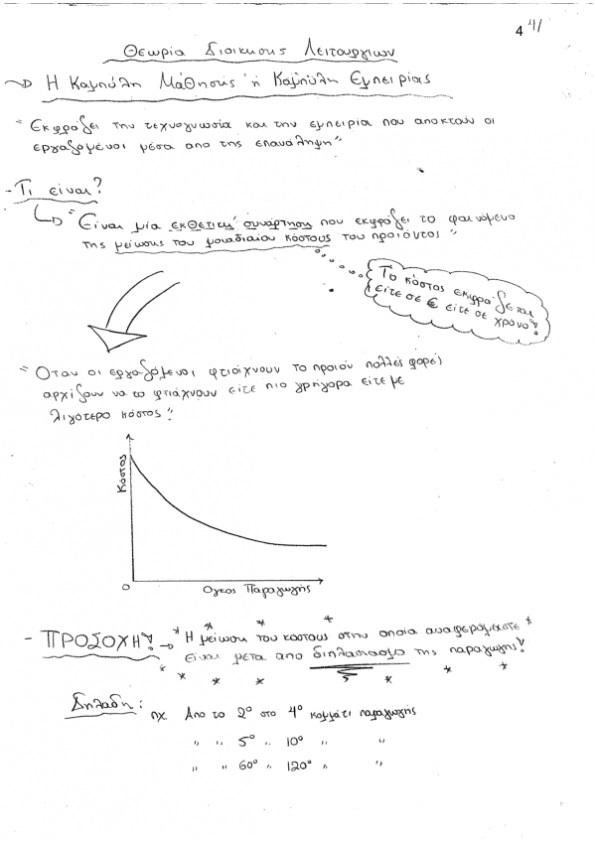 4 41
Θεωρία Διοίκησης Λειτουργιών
Η Καμπύλη Μάθησης ή Καμπύλη Εμπειρίας
"Εκφράζει την τεχνογνωσία και την εμπειρία που αποκτούν οι
εργαζόμενοι μέσα από της επανάληψη"
- Τι είναι?
"Είναι μία εκθετική συνάρτηση που εκφράζει το φαινόμενο
της μείωσης του μοναδιαίου κόστους του προιόντος"
Το κόστος εκφράζεται
είτε σε € είτε σε
χρόνο!
"Όταν οι εργαζόμενοι φτιάχνουν το προιόν πολλές φορές
αρχίζουν να το φτιάχνουν είτε πιο γρήγορα είτε με
λιγότερο κόστος"
Κόστος
0
Όγκος Παραγωγής
- ΠΡΟΣΟΧΗ! → * Η μείωση του κόστους στην οποία αναφερόμαστε *
είναι μετά από διπλασιασμό της παραγωγής!
Δηλαδή: πχ. Από το 2ο στο 4ο κομμάτι παραγωγής
" " 5ο " 10ο " "
" " 60ο " 120ο " "